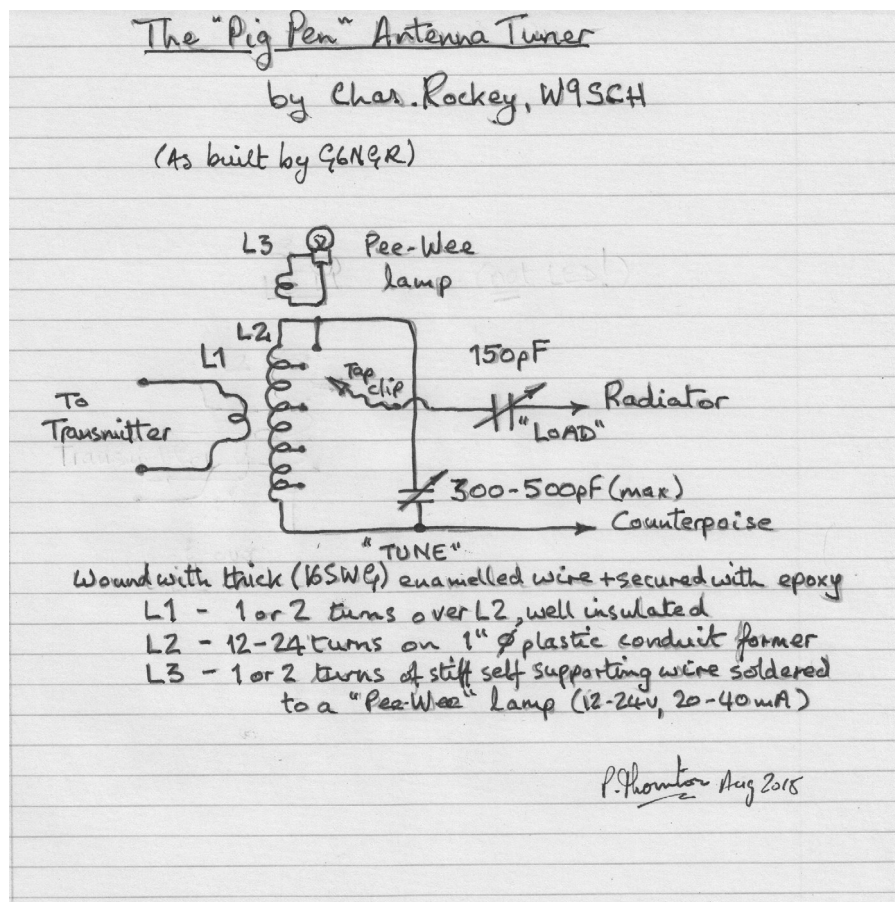 The "Pig Pen" Antenna Tuner
by Chas. Rockey, W9SCH
(As built by G6NGR)
L3 Pee-Wee
lamp
L2
L1
150pF
Tap
clip
To
Transmitter
Radiator
"LOAD"
300-500pF (max)
Counterpoise
"TUNE"
Wound with thick (16SWG) enamelled wire + secured with epoxy
L1 - 1 or 2 turns over L2, well insulated
L2 - 12-24 turns on 1" ø plastic conduit former
L3 - 1 or 2 turns of stiff self supporting wire soldered
to a "Pee-Wee" lamp (12-24v, 20-40mA)
P. Thornton Aug